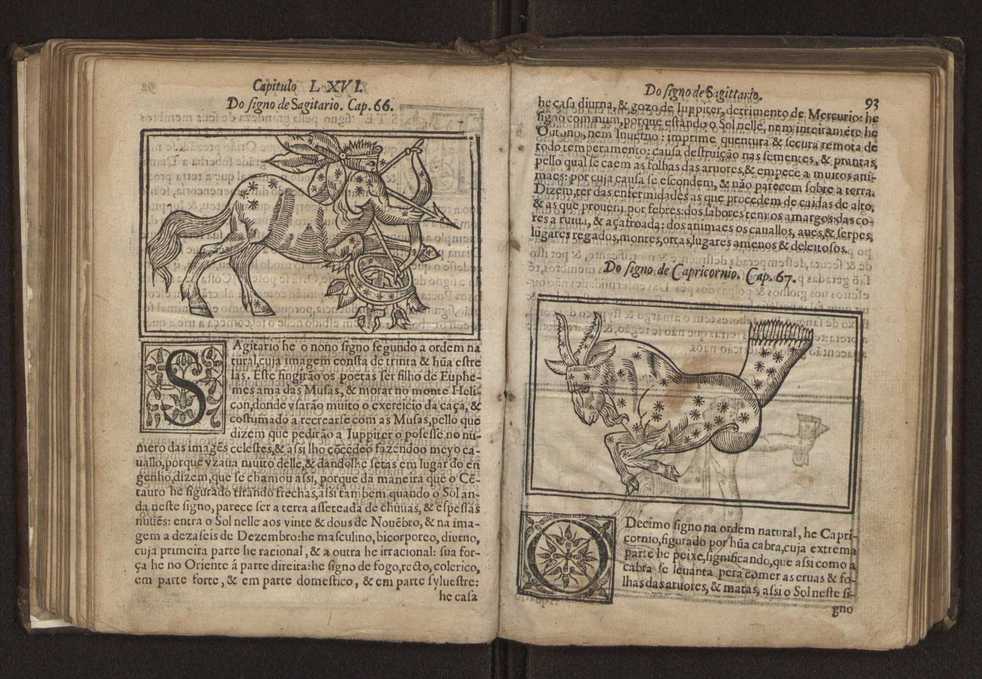 Capitulo LXVI.
Do signo de Sagitario. Cap. 66.
SAgitario he o nono signo segundo a ordem na
tural, cuja imagem consta de trinta & hũa estre
las. Este fingirão os poetas ser filho de Euphe-
mes ama das Musas, & morar no monte Heli
con, donde vsarão muito o exercicio da caça, &
costumado a recrearse com as Musas, pello que
dizem que pedirão a Iuppiter o posesse no nu-
mero das imagẽs celestes, & assi lho cõcedeo fazendoo meyo ca-
uallo, porque vzaua muito delle, & dandolhe setas em lugar do en
genho, dizem, que se chamou assi, porque da maneira que o Cẽ-
tauro he figurado titando frechas, assi tambem quando o Sol an-
da neste signo, parece ser a terra asseteada de chuuas, & espessas
nuuẽs: entra o Sol nelle aos vinte & dous de Nouẽbro, & na ima-
gem a dezaseis de Dezembro: he masculino, bicorporeo, diurno,
cuja primeira parte he racional, & a outra he irracional: sua for-
ça he no Oriente â parte direita: he signo de fogo, recto, colerico,
em parte forte, & em parte domestico, & em parte syluestre:
he casa
Do signo de Sagittario.
93
he casa diurna, & gozo de Iuppiter, detrimento de Mercurio: he
signo commum, porque estando o Sol nelle, nem inteiramẽte he
Outono, nem Inuerno: imprime quentura & secura remota de
todo temperamento: causa destruição nas sementes, & prantas,
pello qual se caem as folhas das aruores, & empece a muitos ani-
maes: por cuja causa se escondem, & não parecem sobre a terra.
Dizem, ter das enfermidades as que procedem de caidas de alto,
& as que prouem por febres: dos sabores tem os amargos: das co-
res a ruiua, & açafroada: dos animaes os cauallos, aues, & serpes,
lugares regados, montes, ortas, lugares amenos & deleitosos.
Do signo de Capricornio. Cap. 67.
O Decimo signo na ordem natural, he Capri-
cornio, figurado por hũa cabra, cuja extrema
parte he peixe, significando, que assi como a
cabra se leuanta pera comer as eruas & fo-
lhas das aruores, & matas, assi o Sol neste si-
gno